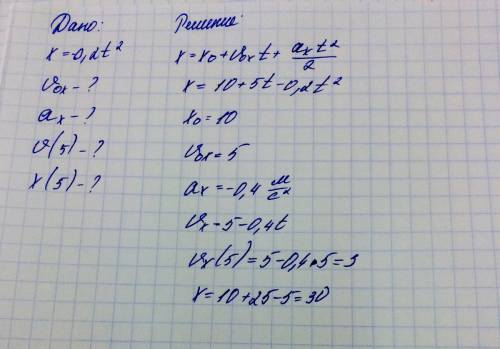 Дано:
x=0,2t²
v₀ₓ-?
aₓ-?
v(5)-?
x(5)-?
Решение:
x=x₀+v₀ₓt+aₓt²/2
x=10+5t-0,2t²
x₀=10
v₀ₓ=5
aₓ=-0,4 м/с²
vₓ-5-0,4t
vₓ(5)=5-0,4•5=3
x=10+25-5=30